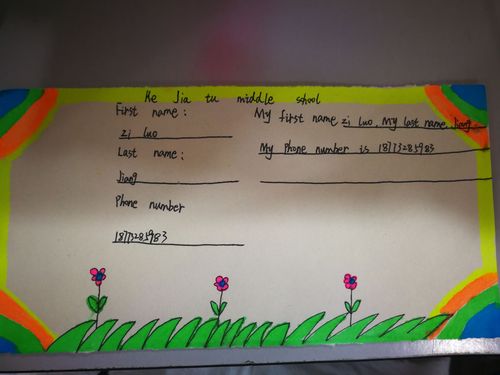 Ke Jia tu middle school
First name:
zi luo
Last name:
Jiang
Phone number
18773285983
My first name zi luo. My last name Jiang.
My Phone number is 18773285983